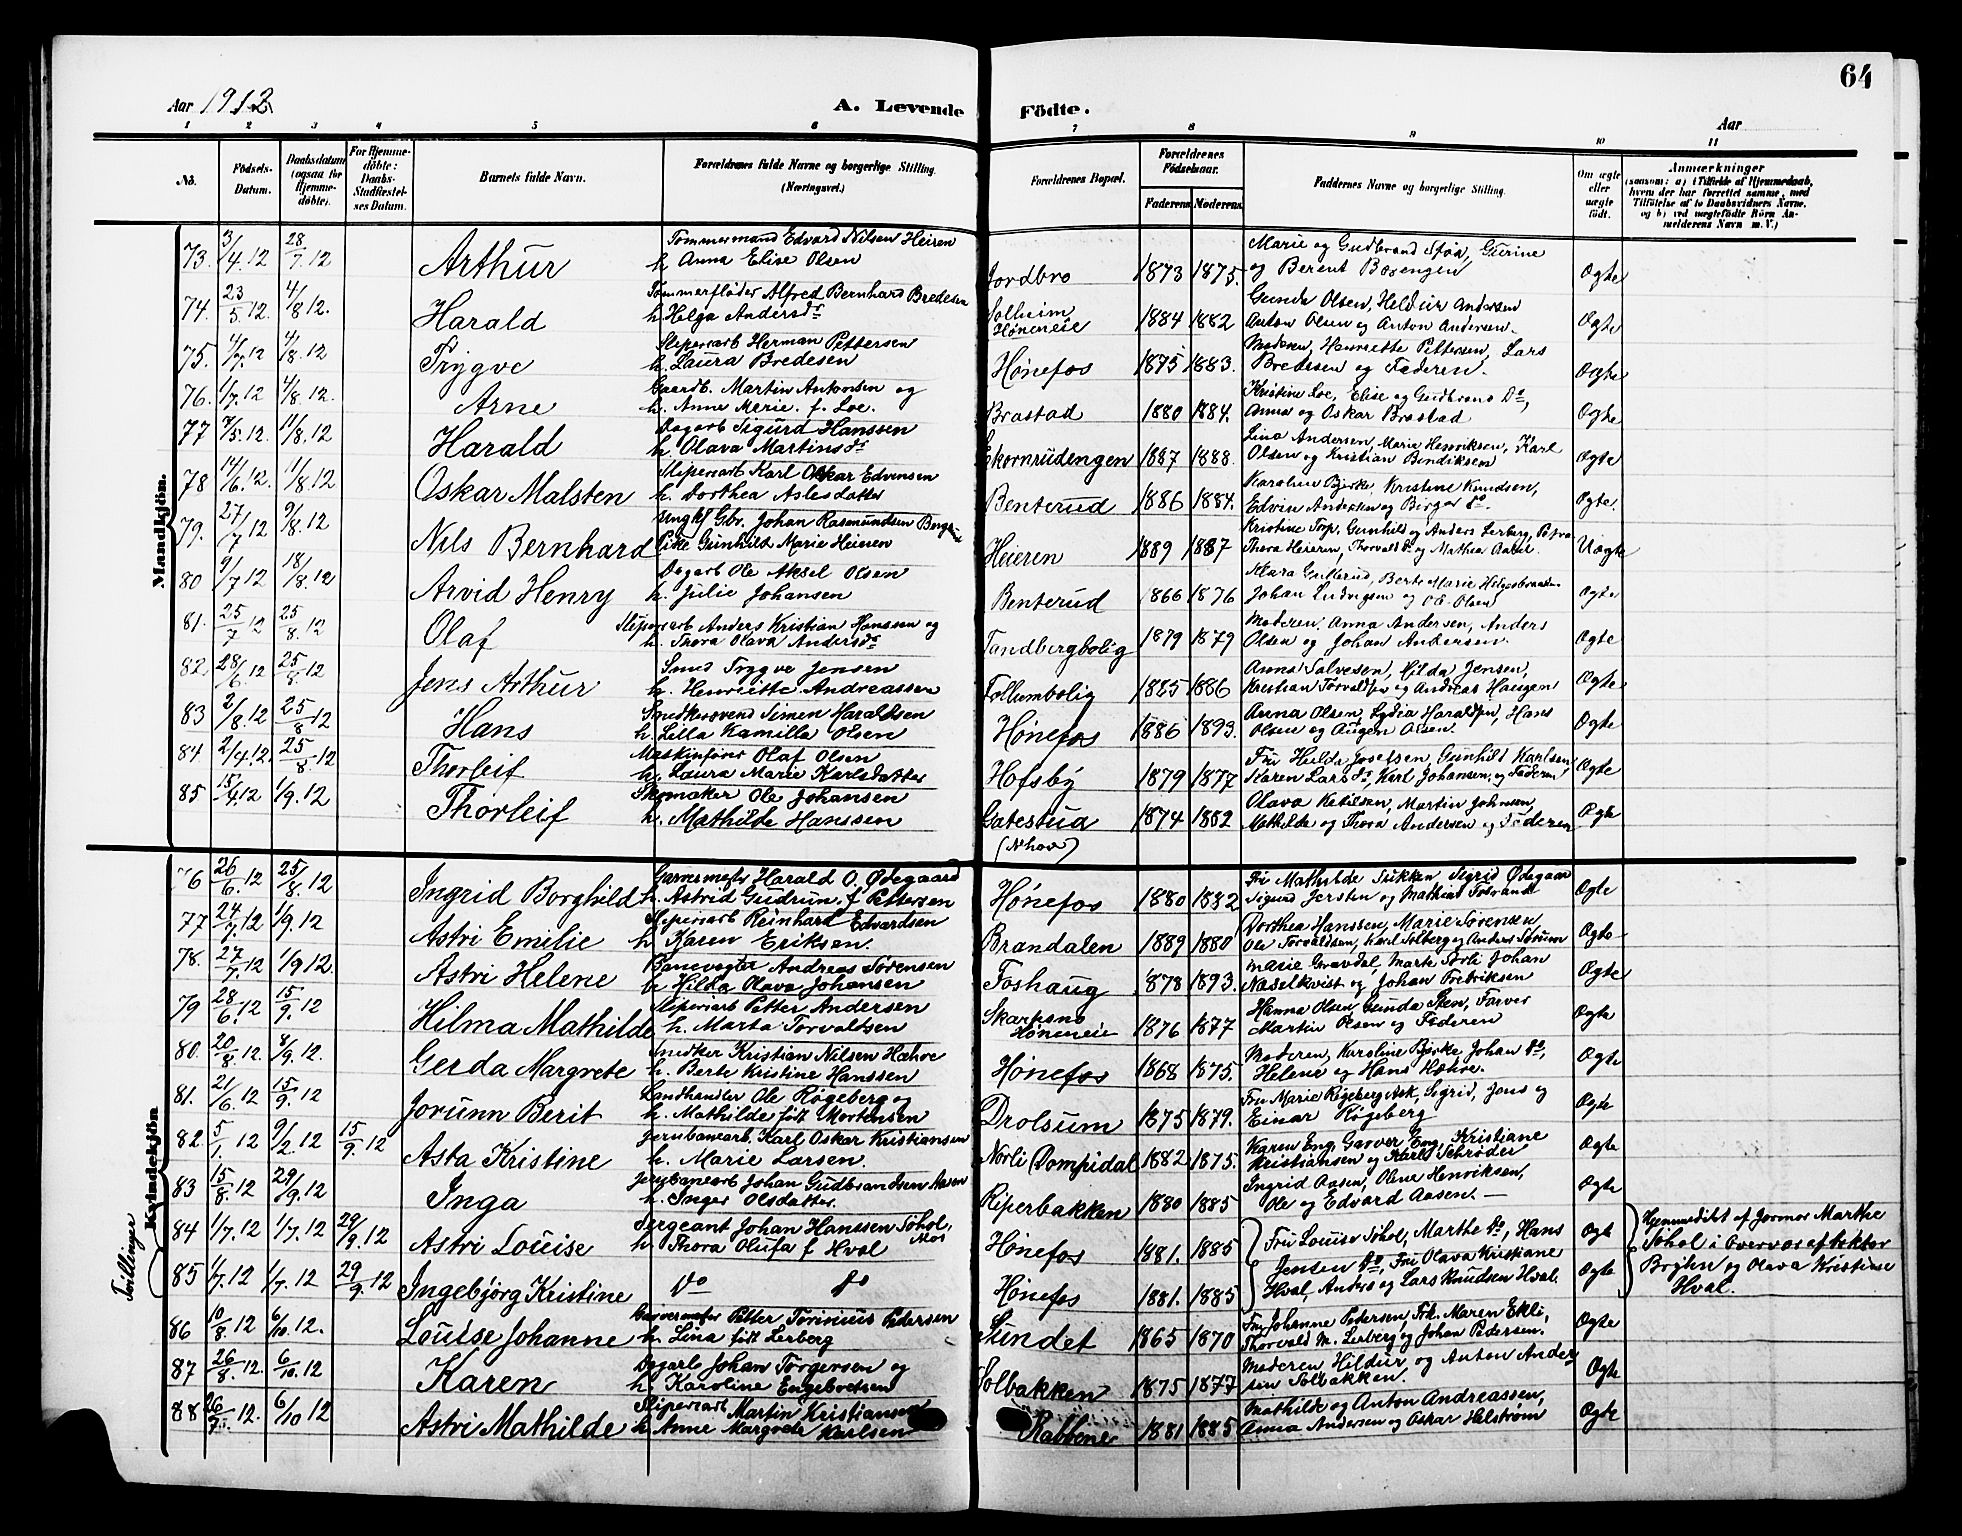 64
Aar 1912
A. Levende Födte.
Aar
1 2 3 4 5 6 7 8 9 10 11
No.
Födsels-Datum.
Daabsdatum (ogsaa for Hjemme-döbte).
For Hjemme-döbte: Daabs-Stadfæstelses Datum.
Barnets fulde Navn.
Forældrenes fulde Navne og borgerlige Stilling. (Næringsvei.)
Forældrenes Bopæl.
Forældrenes Födselsaar.
Faderens. Moderens.
Faddernes Navne og borgerlige Stilling.
Om ægte eller uægte födt.
Anmærkninger
(saasom: a) i Tilfælde af Hjemmedaab, hvem der har forrettet samme, med Tilföielse af to Daabsvidners Navne, og b) ved uægtefödte Börn Anmelderens Navn m. V.)
Mandkjön.
73. 3/4.12 28/7.12 Arthur Tømmermand Edvard Nilsen Heiren
h. Anna Elise Olsen Jordbro 1873 1875. Marie og Gudbrand Sfaa, Gurine
og Berent Bosengen Ægte
74. 23/5.12. 4/8 12. Harald Tømmerfløder Alfred Bernhard Bredesen
h. Helga Andersdr Solheim Hønemeie 1884 1882 Gunda Olsen, Hildur Andersen
Anton Olsen og Anton Andersen. Ægte
75. 4/7.12 4/8.12 Trygve Sliperiarb Herman Pettersen
h. Laura Bredesen Hønefos 1875 1883. Moderen, Henriette Pettersen, Lars
Bredesen og Faderen. Ægte
76. 1/7.12 4/8.12. Arne Gaardb. Martin Antonsen og
h. Anne Marie. f. Loe. Brastad 1880 1884. Kristine Loe, Elise og Gudbrand Do,
Anna og Oskar Brastad Ægte
77 7/5.12. 11/8.12 Harald Dagarb Sigurd Hanssen
h. Olava Martinsdr Ekornrudengen 1887 1888. Lina Andersen, Marie Henriksen, Karl
Olsen og Kristian Bendiksen Ægte
78 14/6.12. 11/8.12 Oskar Malsten Sliperiarb Karl Oskar Edvinsen
h. Dorthea Aslesdatter Benterud 1886 1884. Karoline Bjerke, Kristine Knudsen,
Edvin Andersen og Birger do. Ægte.
79. 27/7 12 9/8.12 Nils Bernhard Ungk Gbr. Johan Rasmundsen
Pike Gunhild Marie Heieren Heieren 1889 1887 Kristine Trp, Gunhild og Anders Lerberg, Petra
Thora Heieren, Thorvald do og Mathea Uægte
80 9/7 12 18/8.12 Arvid Henry Dagarb Ole Aksel Olsen
h. Julie Johansen Benterud 1866 1876 Klara Gullerud, Berte Marie
Johan Ludvigsen og Olsen Ægte
81. 25/7 12 25/8.12 Olaf Sliperiarb Anders Kristian Hanssen og
h. Thora Olava Andersdr Tandbergbolig 1879 1879 Moderen. Anna Andersen, Anders
Olsen og Johan Andersen. Ægte
82. 28/6 12 25/8 12 Jens Arthur Smed Trygve Jensen
h. Henriette Andreassen Follumbolig 1885 1886 Anna Salvesen, Hilda Jensen,
Kristian Torvaldsen og Andreas Haugen Ægte
83 2/8.12 25/8 12 Hans Snedkersvend Simen Haraldsen
h. Lilla Kamilla Olsen Hønefos 1886 1893. Anna Olsen, Lydia Haraldsen, Hans
Olsen og Augen Olsen. Ægte
84 2/4.12. 25/8.12 Thorleif Maskinfører Olaf Olsen
h. Laura Marie Karlsdatter Hofsby 1879 1877 Fru Hilda Josefsen Gunhild Karlsen
Karen Larsdr, Karl Johansen, og Faderen Ægte
85 15/4.12 1/9.12 Thorleif Skomaker Ole Johansen
h. Mathilde Hanssen Gatestua (Nhov) 1874 1882 Olava Ketilsen, Martin Johnsen,
Mathilde og Thora Andersen og Faderen Ægte
Kvindekjön
76 26/6.12 25/8.12 Ingrid Borghild Garvermester Harald O. Ødegaard
h. Astrid Gudrun. f Pettersen Hønefos 1880 1882 Fru Mathilde Sukken Sigrid Ødegaar
Sigurd Jersten og Mathias Ægte
77 24/7 12 1/9.12 Astri Emilie Sliperiarb Reinhard Edvardsen
h Karen Eriksen. Brandalen 1889 1880 Dorthea Hanssen, Marie Sørensen
Ole Torvaldsen, Karl Solberg og Anders Sørum Ægte
78. 27/7.12 1/9 12. Astri Helene Banevogter Andreas Sørensen
h Hilda Olava Johansen Foshaug 1878 1893. Marie Gravdal, Marte Johan
Naselkvist og Johan Fredriksen Ægte
79 28/6.12 15/9.12 Hilma Mathilde Sliperiarb Petter Andersen
h. Marta Torvaldsen Skarpsno Hønemeie 1876 1877 Hanna Olsen, Gunda Sten, Farver
Martin Olsen og Faderen Ægte
80. 20/8.12. 8/9.12. Gerda Margrete Snedker Kristian Nilsen Hæhre
h. Berte Kristine Hanssen Hønefos 1868 1875. Moderen, Karoline Bjerke, Johan do,
Helene og Hans Hæhre. Ægte
81. 21/6.12 15/9.12 Jorunn Berit Landhandler Ole Røgeberg og
h. Mathilde født Mortensen Drolsum 1875 1879. Fru Marie Røgeberg Ask, Sigrid, Jens og
Einar Røgeberg Ægte
82. 5/1. 12 9/2.12 15/9.12 Asta Kristine Jernbanearb. Karl Oskar Kristiansen
h. Marie Larsen. Norli Pompidal 1882 1875. Karen Eng, Garver Eng, Kristiane
Kristiansen og Karl Schrøder Ægte
83 15/8.12 29/9.12 Inga Jernbanearb Johan Gudbrandsen Aasen
h. Inger Olsdatter. Riperbakken 1880 1885 Ingrid Aasen, Oline Henriksen,
Ole og Edvard Aasen. — Ægte
Tvillinger
84 1/7.12 1/7.12 29/9.12 Astri Louise Sergeant Johan Hanssen Sohol,
h. Thora Olufa f Hval Hønefos 1881. 1885 Fru Louise Sohol, Marthe do, Hans
Jensen do, Fru Olava Kristiane Ægte Hjemmedøbt af Jormor Marthe
Sohol i Overvær af Doktor
85 1/7.12 1/7.12 29/9.12 Ingebjørg Kristine Do do Hønefos 1881. 1885 Hval, Anders og Lars Knudsen Hval. Ægte Borghn og Olava Kristiane
Hval.
86 10/8.12 6/10.12. Louise Johanne Garvermester Petter Torinius Pedersen
h. Lina født Lerberg Sundet 1865 1870 Fru Johanne Petersen, Frk. Maren Ekli,
Thorvald M. Lerberg og Johan Pedersen. Ægte
87 26/8.12. 6/10.12 Karen Dagarb Johan Torgersen og
h. Karoline Engebretsen Solbakken 1875 1877 Moderen Hildur, og Anton Ander
sen Solbakken. Ægte
88 26/7. 12. 6/10 12 Astri Mathilde Sliperiarb Martin Kristiansen
h. Anne Margrete Karlsen Rabbene 1881 1885 Mathilde og Anton Andreassen,
Anna Andersen og Oskar Helstrøm Ægte